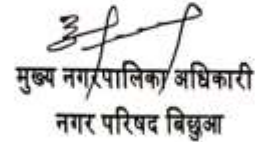 मुख्य नगरपालिका अधिकारी
नगर परिषद बिछुआ